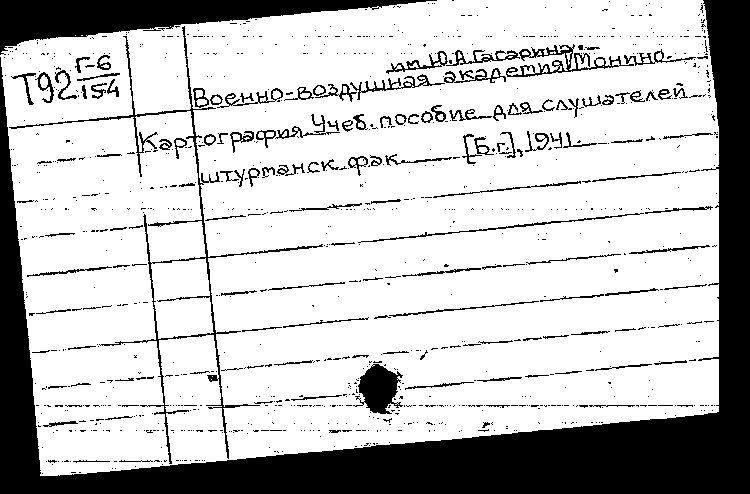 Т92 Г-6/154
им. Ю.А.Гагарина.
Военно-воздушная академия Монино.
Картография. Учеб. пособие для слушателей
штурманск. фак. [Б.г.], 1941.